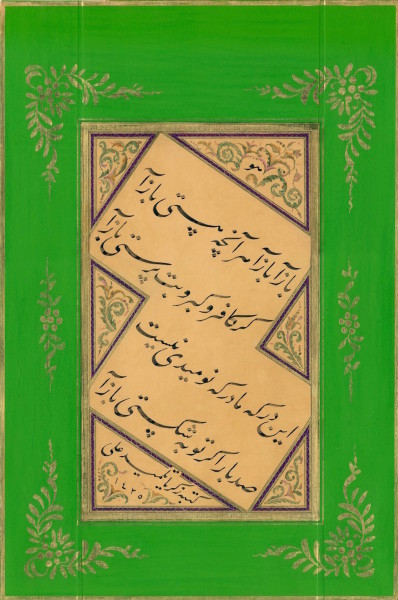 هو
بازآ بازآ هر آنچه هستی بازآ
گر کافر و گبر و بت پرستی بازآ
این درگه ما درگه نومیدی نیست
صد بار اگر توبه شکستی بازآ